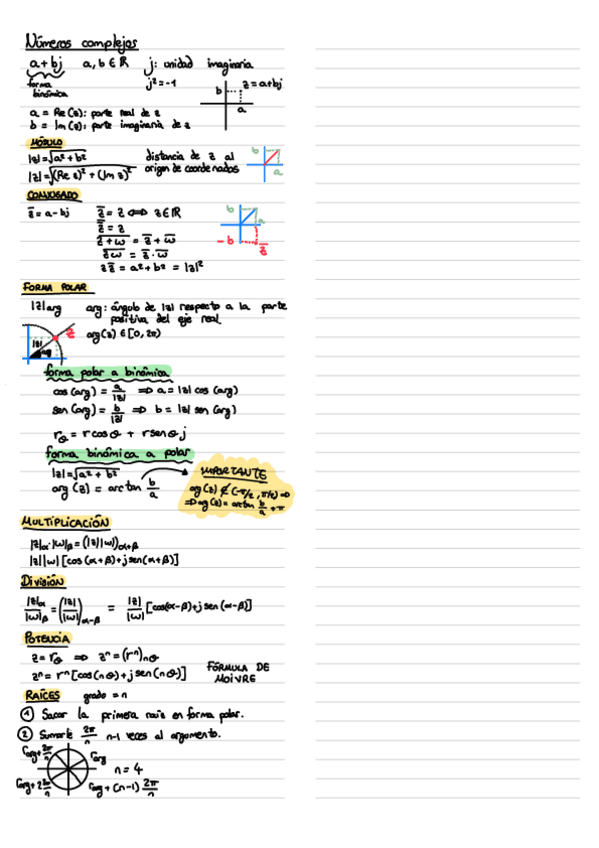 Números complejos
a + bj   a, b ∈ ℝ   j: unidad imaginaria
forma binómica   j² = -1   b   z = a+bj
a
a = Re(z): parte real de z
b = Im(z): parte imaginaria de z
MÓDULO
|z| = √(a² + b²)   distancia de z al   b
|z| = √((Re z)² + (Im z)²)   origen de coordenadas   a
CONJUGADO
z̄ = a - bj   z̄ = z ⟺ z ∈ ℝ   b   a
z̿ = z
\overline{z + w} = z̄ + w̄   -b   z̄
\overline{zw} = z̄ · w̄
z z̄ = a² + b² = |z|²
FORMA POLAR
|z|arg   arg: ángulo de |z| respecto a la parte
positiva del eje real.
z   arg(z) ∈ [0, 2π)
|z|
arg
forma polar a binómica
cos(arg) = a/|z| ⟹ a = |z| cos(arg)
sen(arg) = b/|z| ⟹ b = |z| sen(arg)
r_θ = r cos θ + r sen θ j
forma binómica a polar
|z| = √(a² + b²)   IMPORTANTE
arg(z) = arctan b/a   arg(z) ∉ (-π/2, π/2) ⟹
⟹ arg(z) = arctan b/a + π
MULTIPLICACIÓN
|z|α · |w|β = (|z||w|)α+β
|z||w| [cos(α+β) + j sen(α+β)]
DIVISIÓN
|z|α/|w|β = (|z|/|w|)α-β = |z|/|w| [cos(α-β) + j sen(α-β)]
POTENCIA
z = r_θ ⟹ zⁿ = (rⁿ)nθ
zⁿ = rⁿ [cos(nθ) + j sen(nθ)]   FÓRMULA DE MOIVRE
RAÍCES   grado = n
① Sacar la primera raíz en forma polar.
② Sumarle 2π/n n-1 veces al argumento.
r arg + 2π/n   r arg
n = 4
r arg + 2 2π/n   r arg + (n-1) 2π/n